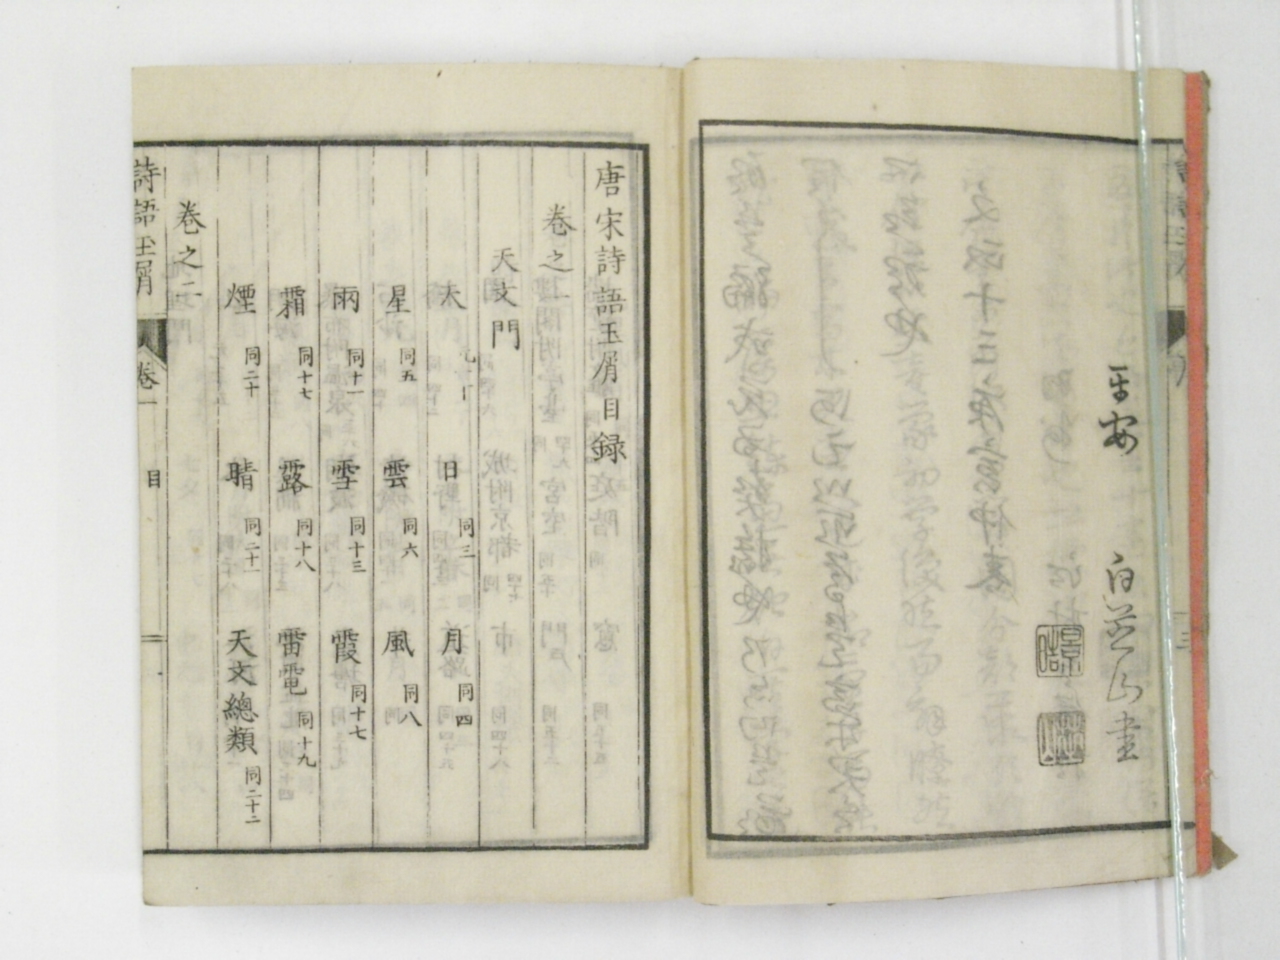 平安
白芝山書
唐宋詩語玉屑目録
卷之一
天文門
天 日 同三 月 同四
星 同五 雲 同六 風 同八
雨 同十一 雪 同十三 霞 同十七
霜 同十七 露 同十八 雷電 同十九
煙 同二十 晴 同二十一 天文總類 同二十二
卷之二
詩語玉屑 卷一 目 一